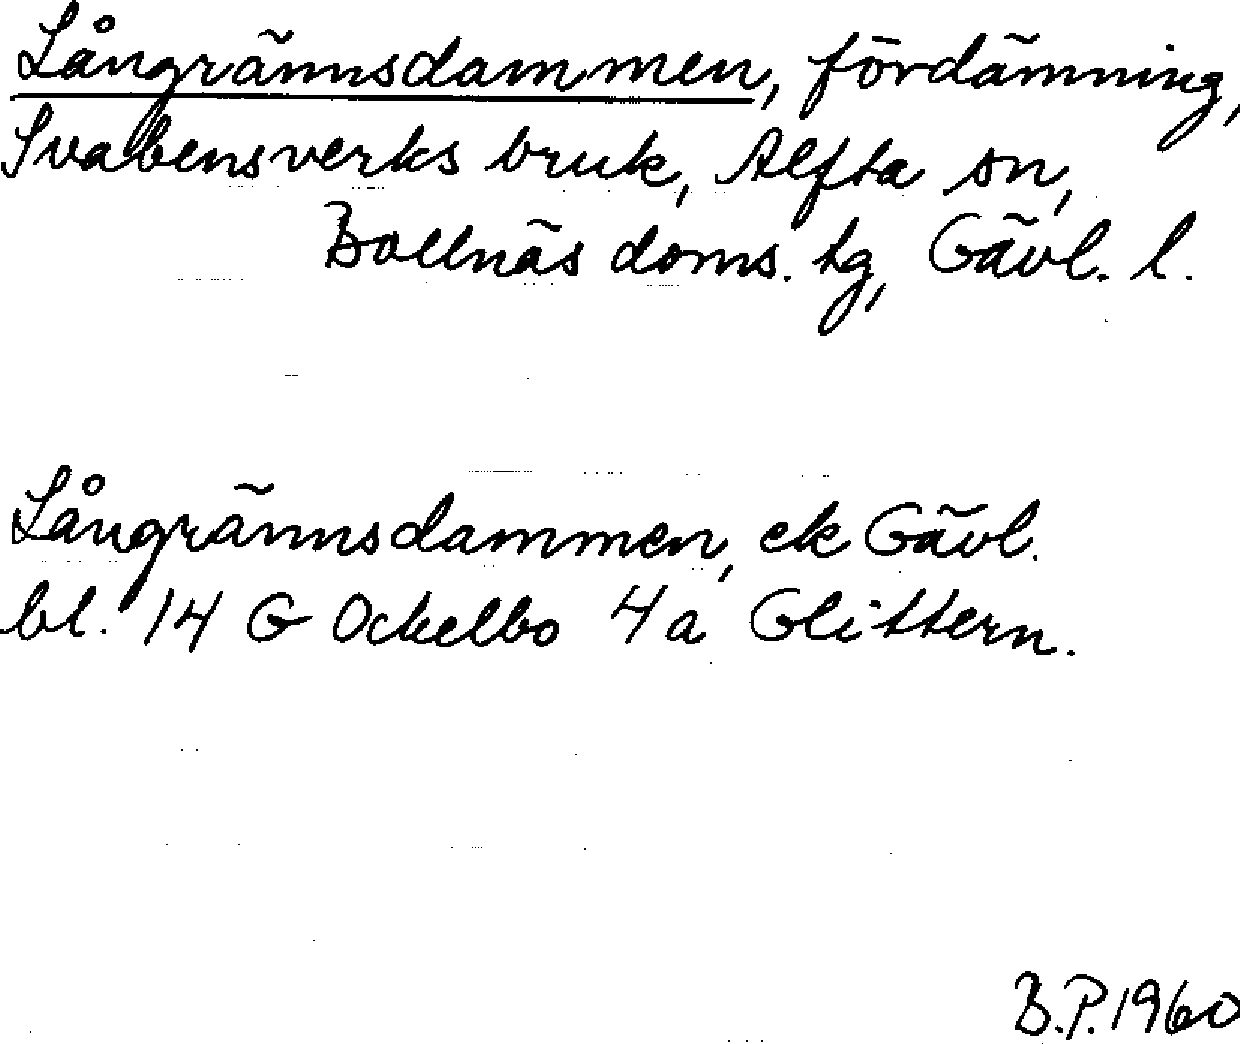 Långrännsdammen, fördämning,
Svabensverks bruk, Alfta sn,
Bollnäs doms. tg, Gävl. l.
Långrännsdammen, ek Gävl.
bl. 14 G Ockelbo 4a Glittern.
B.P. 1960